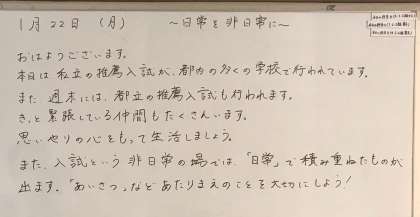 1月22日（月）　～日常を非日常に～
おはようございます。
本日は私立の推薦入試が、都内の多くの学校で行われています。
また 週末には、都立の推薦入試も行われます。
きっと緊張している仲間もたくさんいます。
思いやりの心をもって生活しましょう。
また、入試という非日常の場では、「日常」で積み重ねたものが
出ます。「あいさつ」などあたりまえのことを大切にしよう！